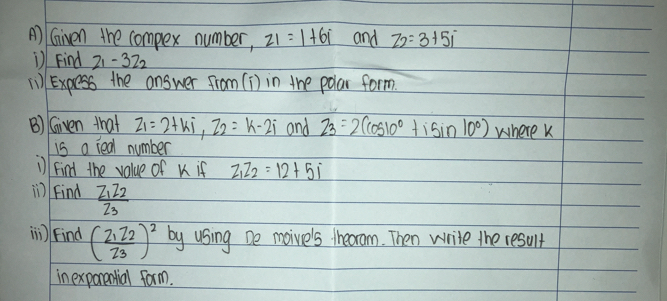 A) Given the complex number, z1 = 1+6i and z2 = 3+5i
i) Find z1 - 3z2
ii) Express the answer from (i) in the polar form.
B) Given that z1 = 2+ki, z2 = k-2i and z3 = 2(cos10° + i sin 10°) where k
is a real number
i) Find the value of k if z1z2 = 12+5i
ii) Find z1z2/z3
iii) Find (z1z2/z3)² by using De moivre's theoram. Then write the result
in exponential form.